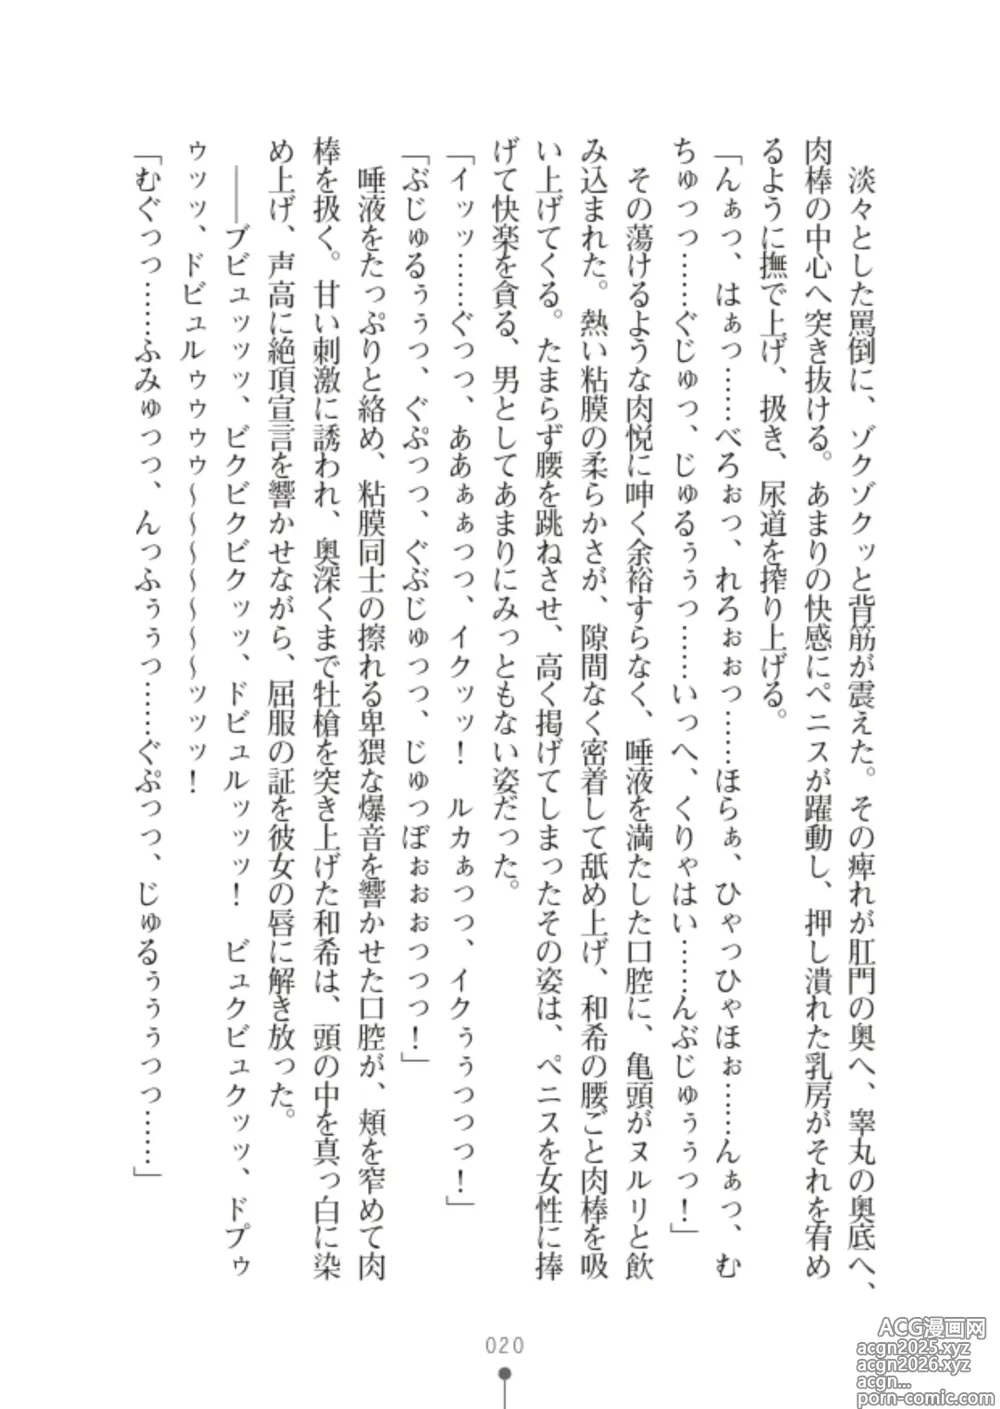 淡々とした罵倒に、ゾクゾクッと背筋が震えた。その痺れが肛門の奥へ、睾丸の奥底へ、
肉棒の中心へ突き抜ける。あまりの快感にペニスが躍動し、押し潰れた乳房がそれを宥め
るように撫で上げ、扱き、尿道を搾り上げる。
「んぁっ、はぁっ……べろぉっ、れろぉぉっ……ほらぁ、ひゃっひゃほぉ……んぁっ、む
ちゅっっ……ぐじゅっ、じゅるぅぅっ……いっへ、くりゃはい……んぶじゅぅぅっ！」
その蕩けるような肉悦に呻く余裕すらなく、唾液を満たした口腔に、亀頭がヌルリと飲
み込まれた。熱い粘膜の柔らかさが、隙間なく密着して舐め上げ、和希の腰ごと肉棒を吸
い上げてくる。たまらず腰を跳ねさせ、高く掲げてしまったその姿は、ペニスを女性に捧
げて快楽を貪る、男としてあまりにみっともない姿だった。
「イッッ……ぐっっ、ああぁぁっっ、イクッッ！　ルカぁっっ、イクぅぅっっっ！」
「ぶじゅるぅぅっ、ぐぷっっ、ぐぶじゅっっ、じゅっぽぉぉぉっっっ！」
唾液をたっぷりと絡め、粘膜同士の擦れる卑猥な爆音を響かせた口腔が、頬を窄めて肉
棒を扱く。甘い刺激に誘われ、奥深くまで牡槍を突き上げた和希は、頭の中を真っ白に染
め上げ、声高に絶頂宣言を響かせながら、屈服の証を彼女の唇に解き放った。
――ブビュッッッ、ビクビクビクッッ、ドビュルッッッ！　ビュクビュクッッ、ドプゥ
ゥッッ、ドビュルゥゥゥゥ～～～～～～～ッッッ！
「むぐっっ……ふみゅっっ、んっふぅぅっ……ぐぷっっ、じゅるぅぅぅっっ……」
020
ACG漫画网
acgn2025.xyz
acgn2026.xyz
acgn...
porn-comic.com